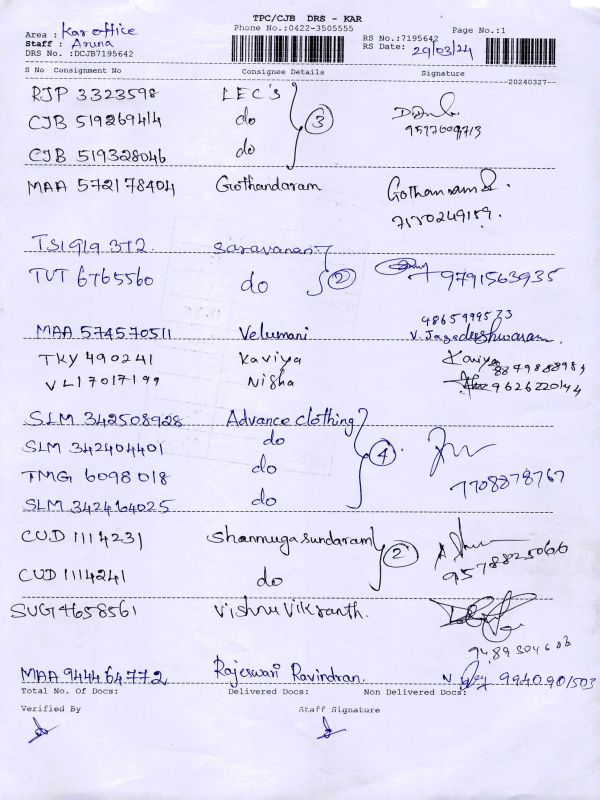 TPC/CJB DRS - KAR
Area : Kar office
Phone No.:0422-3505555
Page No.:1
Staff : Aruna
RS No.:7195642
DRS No. :DCJB7195642
RS Date: 29/03/24
S No Consignment No Consignee Details Signature
20240327
RJP 3323598 LEC's
CJB 519269414 do 3
CJB 519328046 do
MAA 572178404 Gothandaram
TS1919372 Saravanan
TUT 6765560 do 2 9791563935
MAA 574570511 Velumani V. Jagadeeshwaran
TKY 490241 Kaviya Kaviya
VL17017199 Nisha 9626220144
SLM 342508928 Advance clothing
SLM 342404401 do 4
TMG 6098018 do
7708878767
SLM 342464025 do
CUD 1114231 Shanmugasundaram 2
CUD 1114241 do 9578825066
SUG 4658561 Vishnu Vikranth.
MAA 944464772 Rajeswari Ravindran. 9940901503
Total No. Of Docs: Delivered Docs: Non Delivered Docs:
Verified By Staff Signature